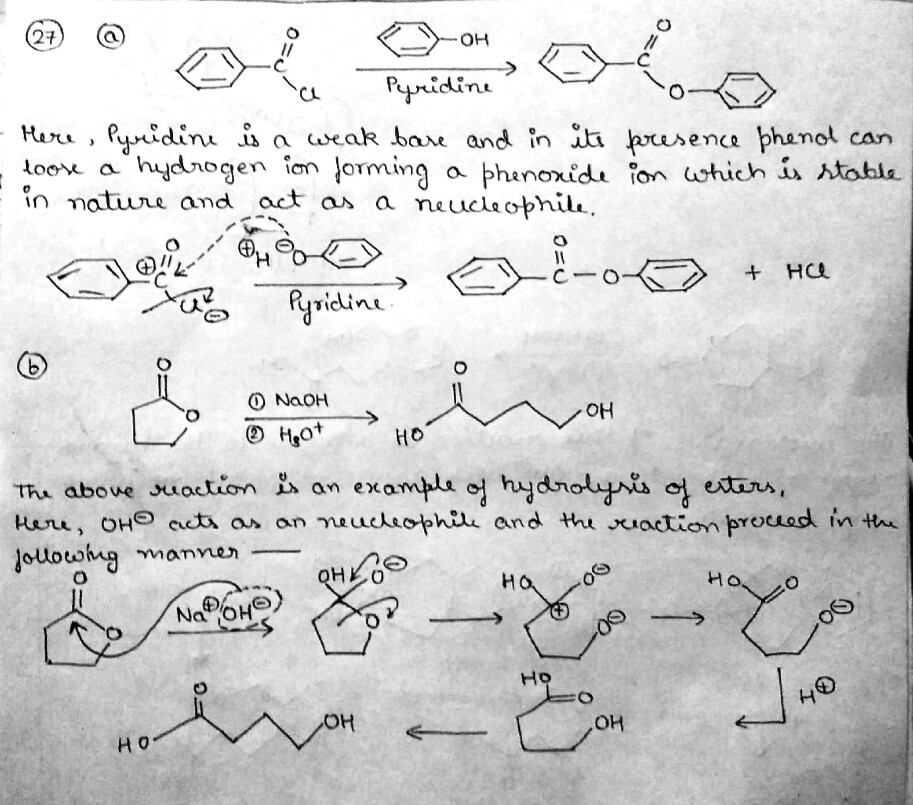 27 a
O
C
Cl
OH
Pyridine
O
C
O
Here, Pyridine is a weak base and in its presence phenol can
loose a hydrogen ion forming a phenoxide ion which is stable
in nature and act as a neucleophile.
O
⊕
C
Cl ⊖
⊕H ⊖O
Pyridine.
O
C-O
+ HCl
b
O
O
① NaOH
② H₃O+
O
HO
OH
The above reaction is an example of hydrolysis of esters,
Here, OH⊖ acts as an neucleophile and the reaction proceed in the
following manner —
O
O
Na⊕ OH⊖
OH O⊖
O
HO O⊖
⊕
O⊖
HO O
O⊖
H⊕
HO
O
OH
O
HO
OH